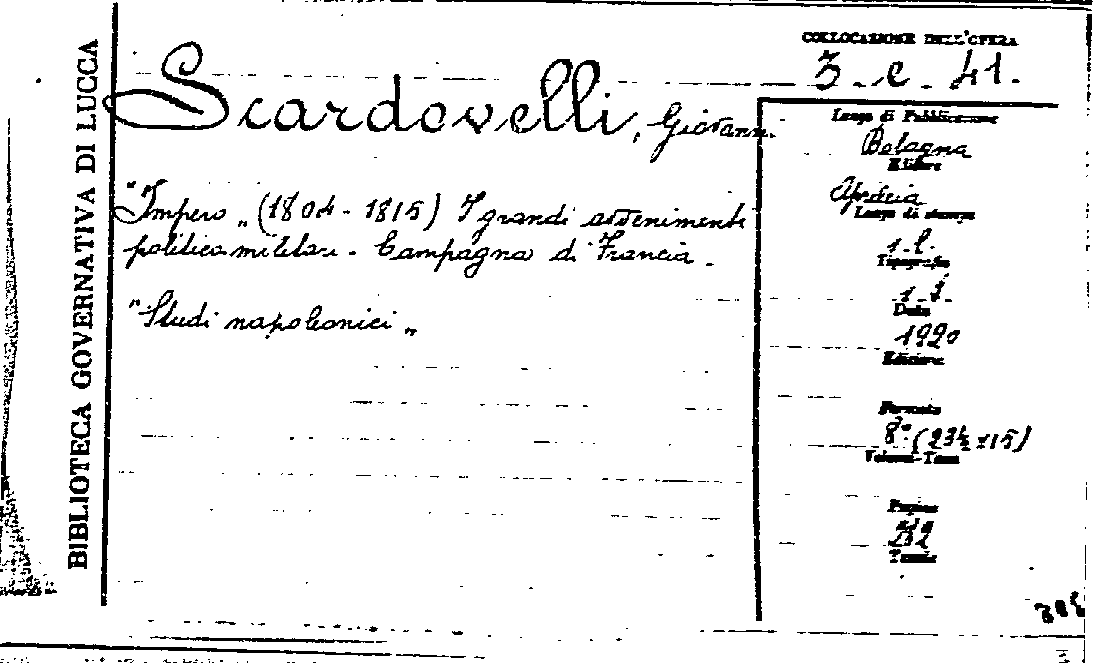 BIBLIOTECA GOVERNATIVA DI LUCCA
Scardovelli, Giovanni
"Impero„ (1804 - 1815) I grandi avvenimenti
politico militari - Campagna di Francia -
"Studi napoleonici„
COLLOCAZIONE DELL'OPERA
3 - c - 41 -
Luogo di Pubblicazione
Bologna
Editore
Luogo di stampa
s. l.
Tipografia
Data
1920
Edizione
Formato
8° (23½ x 15)
Volumi-Tomi
Pagine
232
Tavole